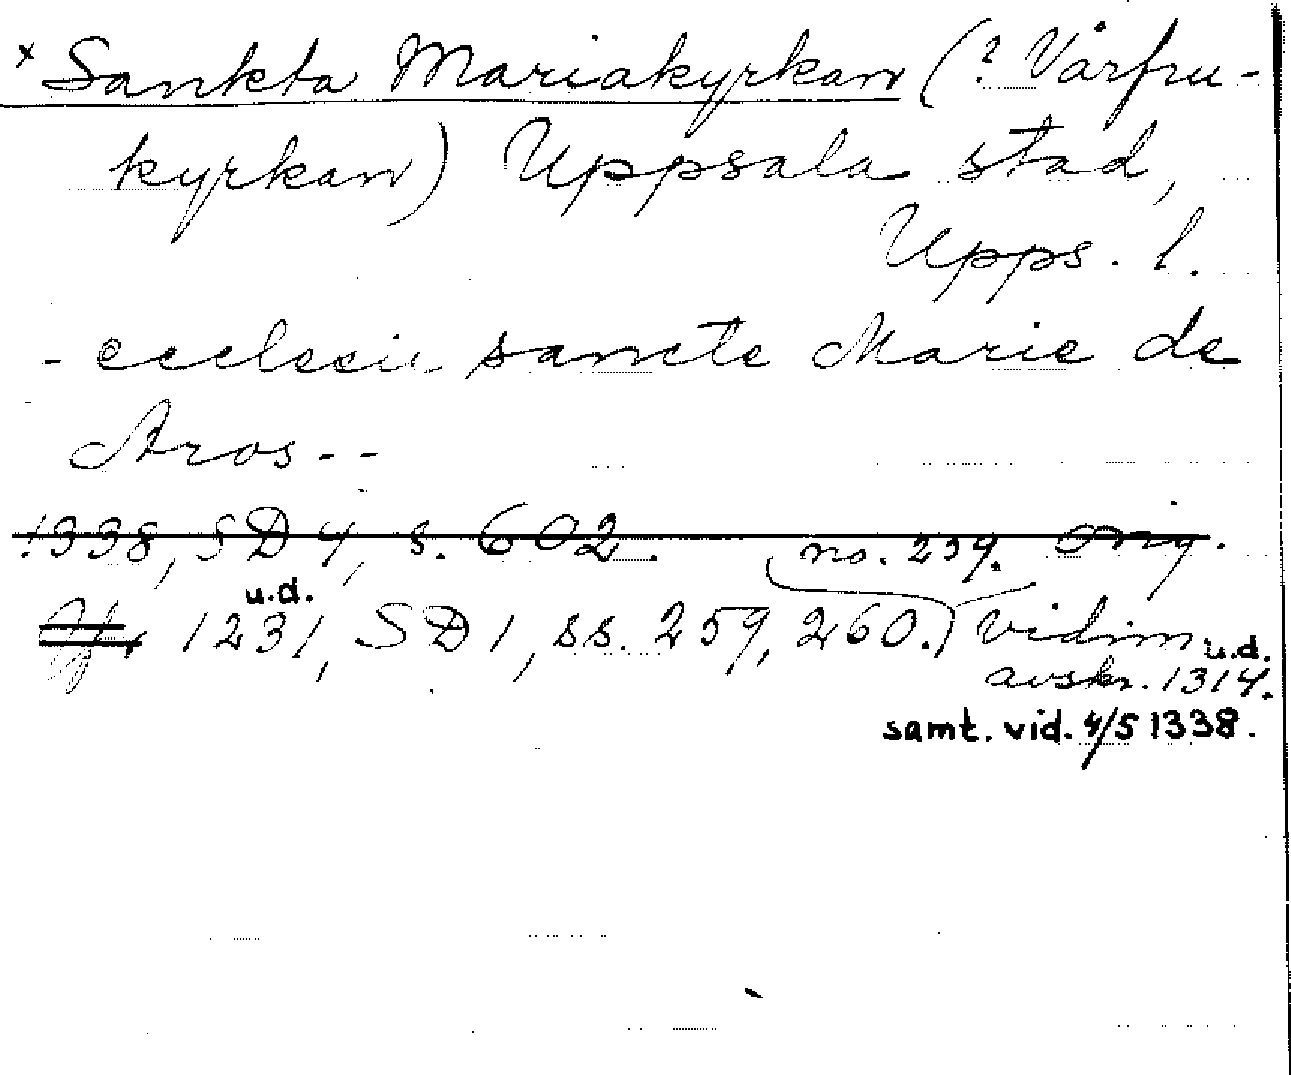 x Sankta Mariakyrkan (? Vårfru-
kyrkan) Uppsala stad,
Upps. l.
- ecclesie sancte Marie de
Aros --
1338, SD 4, s. 602. no. 239. orig.
u.d.
1231, SD 1, ss. 259, 260. Vidim u.d.
avskr. 1314.
samt. vid. 4/5 1338.